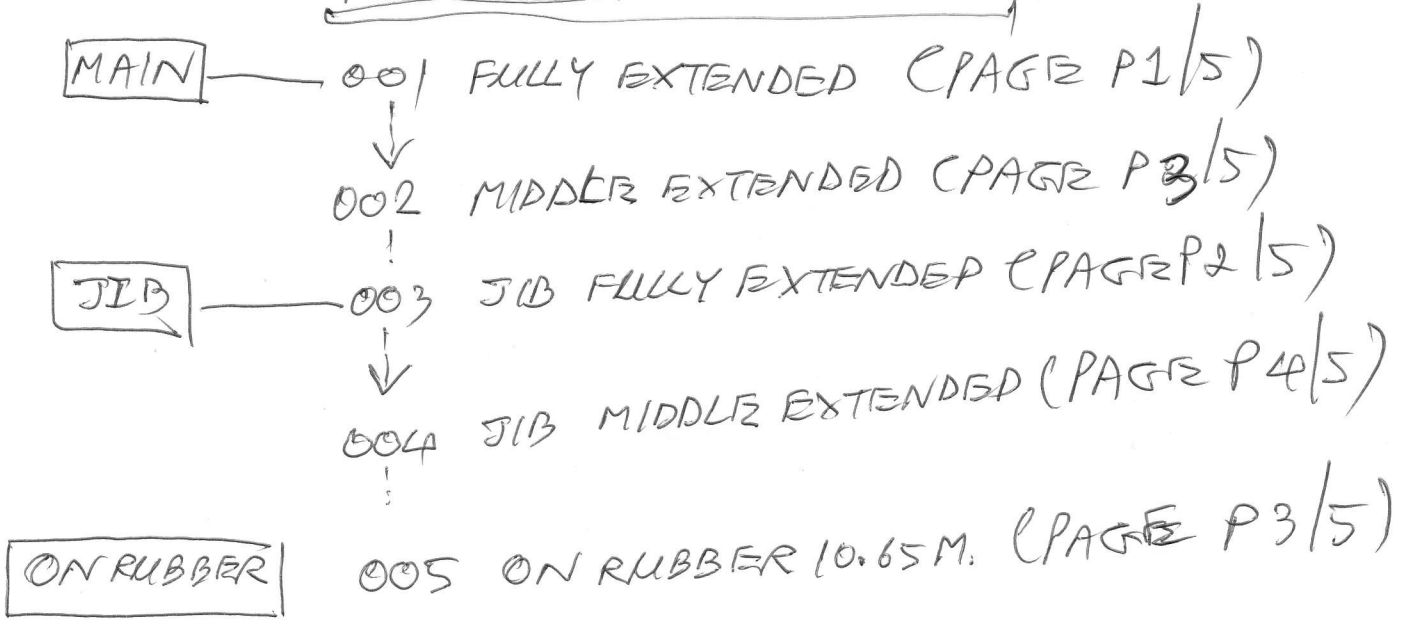 MAIN 001 FULLY EXTENDED (PAGE P1/5)
002 MIDDLE EXTENDED (PAGE P3/5)
JIB 003 JIB FULLY EXTENDED (PAGE P2/5)
004 JIB MIDDLE EXTENDED (PAGE P4/5)
ON RUBBER 005 ON RUBBER 10.65M. (PAGE P3/5)